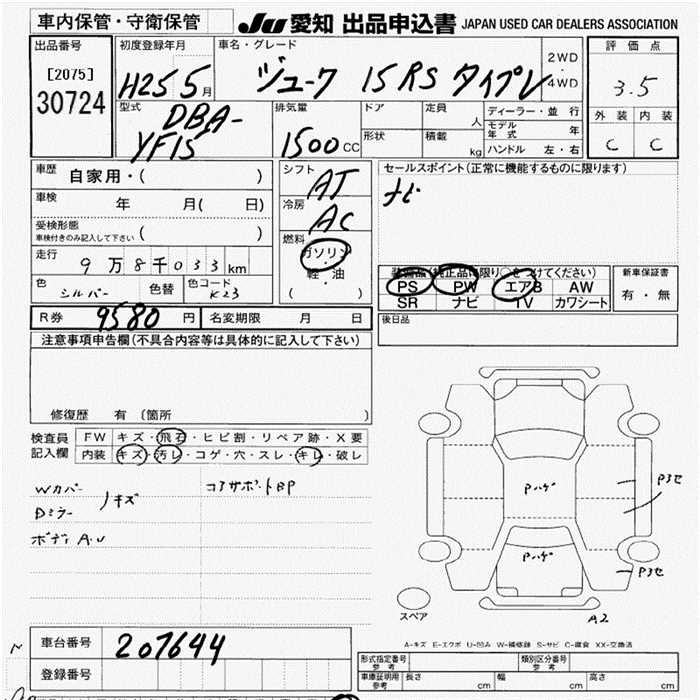 車内保管・守衛保管
Ju 愛知 出品申込書 JAPAN USED CAR DEALERS ASSOCIATION
出品番号
[2075]
30724
初度登録年月
H25 5月
車名・グレード
ジューク 15RS タイプV
2WD
・
4WD
評価点
3.5
外装 内装
C C
型式
DBA-
YF15
排気量
1500cc
ドア
形状
定員 人
積載 kg
ディーラー・並行
モデル年式 年
ハンドル 左・右
車歴
自家用・( )
車検 年 月( 日)
受検形態
車検付きのみ記入して下さい ( )
走行
9万8千033km
色
シルバー 色替
色コード
K23
シフト
AT
冷房
AC
燃料
ガソリン
・
軽・油
( )
セールスポイント(正常に機能するものに限ります)
ナビ
装備品(純正品に限り○をつけてください)
PS PW エアB AW
SR ナビ TV カワシート
新車保証書
有・無
R券 9580円 名変期限 月 日
後日品
注意事項申告欄(不具合内容等は具体的に記入して下さい)
修復歴 有 〔箇所 〕
検査員
記入欄
FW キズ・飛石・ヒビ割・リペア跡・X要
内装 キズ・汚レ・コゲ・穴・スレ・キレ・破レ
Wカバー
Dミラー
ノキズ
ボディA・U
コアサポートBP
Pハゲ
Pハゲ
P3セ
P3セ
スペア
A2
A-キズ E-エクボ U-凹み W-補修跡 S-サビ C-腐食 XX-交換済
車台番号 207644
登録番号
形式指定番号
参考
類別区分番号
参考
車庫証明用
参考
長さ cm 幅 cm 高さ cm